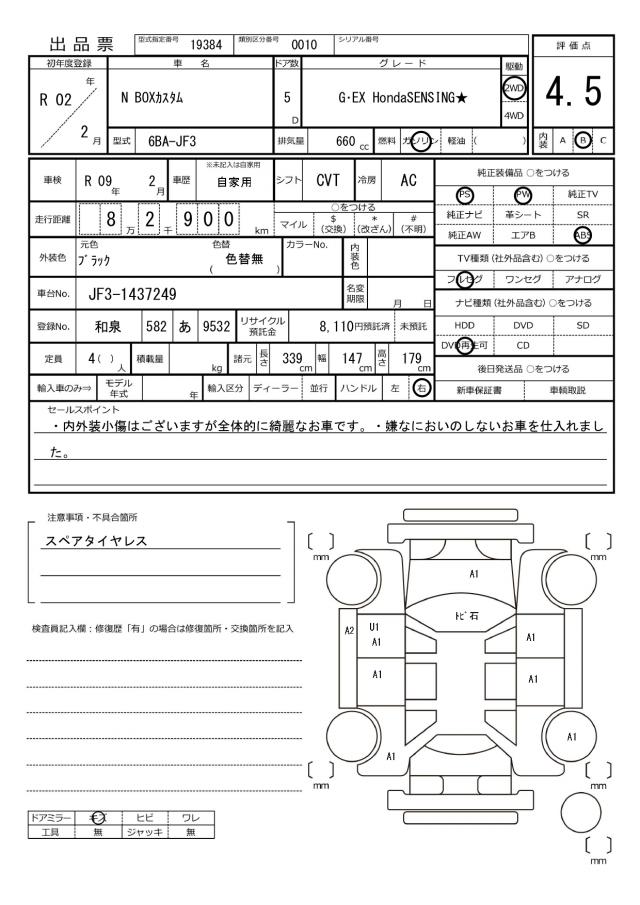 出品票 型式指定番号 19384 類別区分番号 0010 シリアル番号
評価点
4.5
内装 A B C
初年度登録 車名 ドア数 グレード 駆動
R 02 年 2 月
N BOXカスタム 5 D G・EX HondaSENSING★ 2WD 4WD
型式 6BA-JF3 排気量 660 cc 燃料 ガソリン 軽油 ( )
車検 R 09 年 2 月 車歴 ※未記入は自家用 自家用 シフト CVT 冷房 AC
走行距離 8 万 2 千 9 0 0 km
○をつける
マイル $ (交換) * (改ざん) # (不明)
外装色 元色 ブラック 色替 ( 色替無 ) カラーNo. 内装色
車台No. JF3-1437249 名変期限 月 日
登録No. 和泉 582 あ 9532 リサイクル預託金 8,110円預託済 未預託
定員 4( ) 人 積載量 kg 諸元 長さ 339 cm 幅 147 cm 高さ 179 cm
輸入車のみ⇒ モデル年式 年 輸入区分 ディーラー 並行 ハンドル 左 右
純正装備品 ○をつける
PS PW 純正TV
純正ナビ 革シート SR
純正AW エアB ABS
TV種類(社外品含む) ○をつける
フルセグ ワンセグ アナログ
ナビ種類(社外品含む) ○をつける
HDD DVD SD
DVD再生可 CD
後日発送品 ○をつける
新車保証書 車輌取説
セールスポイント
・内外装小傷はございますが全体的に綺麗なお車です。・嫌なにおいのしないお車を仕入れまし
た。
注意事項・不具合箇所
スペアタイヤレス
検査員記入欄：修復歴「有」の場合は修復箇所・交換箇所を記入
ドアミラー キズ ヒビ ワレ
工具 無 ジャッキ 無
mm mm
A1
トビ石
A2 U1 A1 A1
A1 A1
A1 A1
mm mm
mm